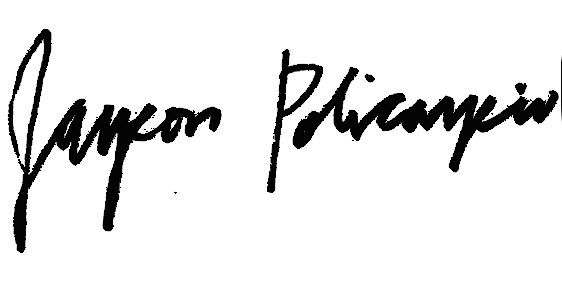 Jayson Policarpio